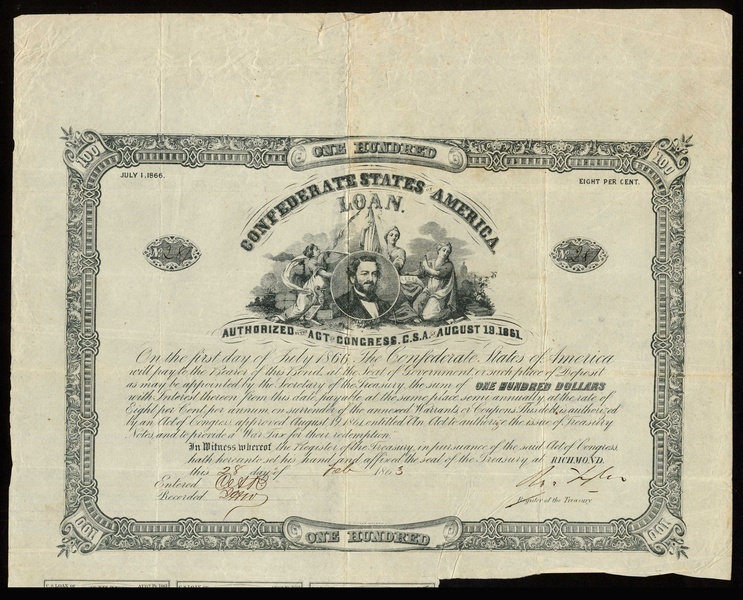 ONE HUNDRED
100 100
JULY 1, 1866. EIGHT PER CENT.
CONFEDERATE STATES OF AMERICA.
LOAN.
AUTHORIZED BY THE ACT OF CONGRESS, C.S.A. OF AUGUST 19, 1861.
On the first day of July 1866, The Confederate States of America
will pay to the Bearer of this Bond, at the seat of Government or such place of Deposit
as may be appointed by the Secretary of the Treasury, the sum of ONE HUNDRED DOLLARS
with Interest thereon from this date, payable at the same place semi annually, at the rate of
Eight per Cent. per annum on surrender of the annexed Warrants or Coupons. This debt is authorized
by an Act of Congress approved August 19, 1861, entitled An Act to authorize the issue of Treasury
Notes, and to provide a War Tax for their redemption.
In Witness whereof the Register of the Treasury, in pursuance of the said Act of Congress
hath hereunto set his hand and affixed the seal of the Treasury at RICHMOND.
this 28 day of Feb 1863
Entered
Recorded
Register of the Treasury
100 100
ONE HUNDRED